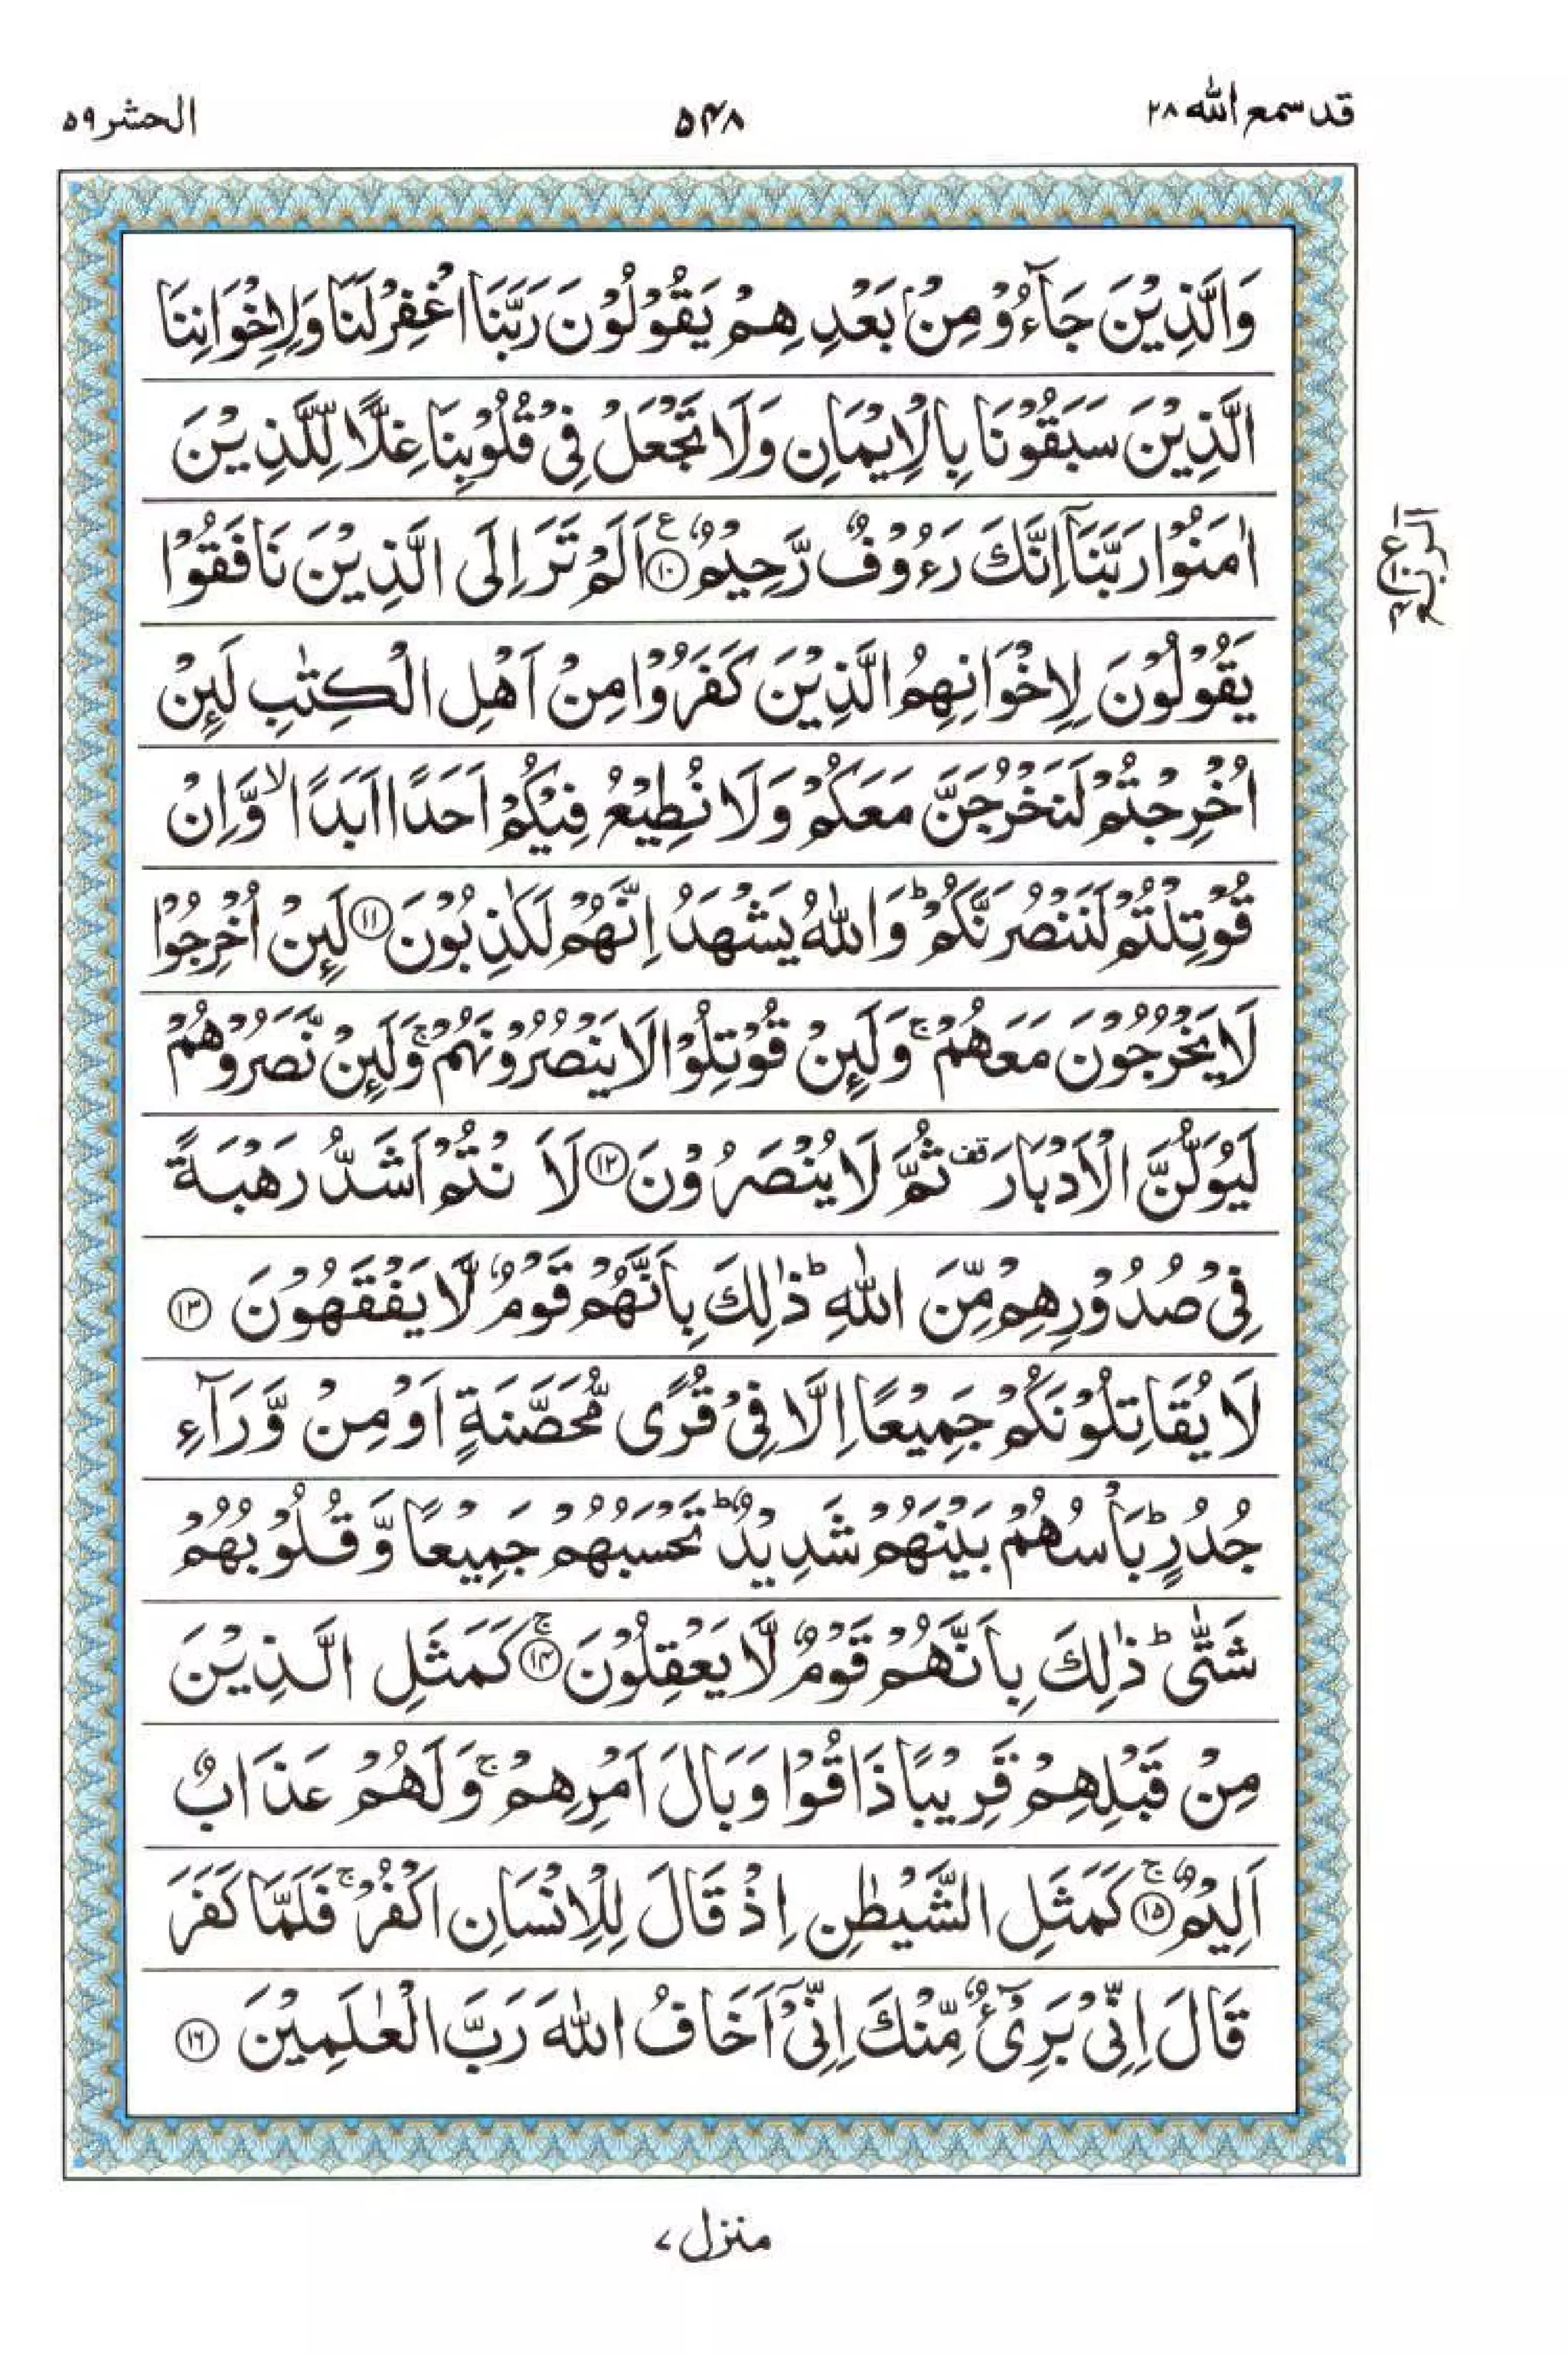 قد سمع الله ٢٨
٥٤٨
الحشر ٥٩
وَالَّذِيْنَ جَآءُوْ مِنْۢ بَعْدِهِمْ يَقُوْلُوْنَ رَبَّنَا اغْفِرْ لَنَا وَلِاِخْوَانِنَا
الَّذِيْنَ سَبَقُوْنَا بِالْاِيْمَانِ وَلَا تَجْعَلْ فِيْ قُلُوْبِنَا غِلًّا لِّلَّذِيْنَ
اٰمَنُوْا رَبَّنَآ اِنَّكَ رَءُوْفٌ رَّحِيْمٌ ۧ﴿١٠﴾ اَلَمْ تَرَ اِلَى الَّذِيْنَ نَافَقُوْا
الربع
ع
٤
يَقُوْلُوْنَ لِاِخْوَانِهِمُ الَّذِيْنَ كَفَرُوْا مِنْ اَهْلِ الْكِتٰبِ لَىِٕنْ
اُخْرِجْتُمْ لَنَخْرُجَنَّ مَعَكُمْ وَلَا نُطِيْعُ فِيْكُمْ اَحَدًا اَبَدًا ۙ وَّاِنْ
قُوْتِلْتُمْ لَنَنْصُرَنَّكُمْ ؕ وَاللّٰهُ يَشْهَدُ اِنَّهُمْ لَكٰذِبُوْنَ ﴿١١﴾ لَىِٕنْ اُخْرِجُوْا
لَا يَخْرُجُوْنَ مَعَهُمْ ۚ وَلَىِٕنْ قُوْتِلُوْا لَا يَنْصُرُوْنَهُمْ ۚ وَلَىِٕنْ نَّصَرُوْهُمْ
لَيُوَلُّنَّ الْاَدْبَارَ قف ثُمَّ لَا يُنْصَرُوْنَ ﴿١٢﴾ لَاَنْتُمْ اَشَدُّ رَهْبَةً
فِيْ صُدُوْرِهِمْ مِّنَ اللّٰهِ ؕ ذٰلِكَ بِاَنَّهُمْ قَوْمٌ لَّا يَفْقَهُوْنَ ﴿١٣﴾
لَا يُقَاتِلُوْنَكُمْ جَمِيْعًا اِلَّا فِيْ قُرًى مُّحَصَّنَةٍ اَوْ مِنْ وَّرَآءِ
جُدُرٍ ؕ بَاْسُهُمْ بَيْنَهُمْ شَدِيْدٌ ؕ تَحْسَبُهُمْ جَمِيْعًا وَّقُلُوْبُهُمْ
شَتّٰى ؕ ذٰلِكَ بِاَنَّهُمْ قَوْمٌ لَّا يَعْقِلُوْنَ ۚ﴿١٤﴾ كَمَثَلِ الَّذِيْنَ
مِنْ قَبْلِهِمْ قَرِيْبًا ذَاقُوْا وَبَالَ اَمْرِهِمْ ۚ وَلَهُمْ عَذَابٌ
اَلِيْمٌ ۚ﴿١٥﴾ كَمَثَلِ الشَّيْطٰنِ اِذْ قَالَ لِلْاِنْسَانِ اكْفُرْ ۚ فَلَمَّا كَفَرَ
قَالَ اِنِّيْ بَرِيْٓءٌ مِّنْكَ اِنِّيْٓ اَخَافُ اللّٰهَ رَبَّ الْعٰلَمِيْنَ ﴿١٦﴾
منزل ٧